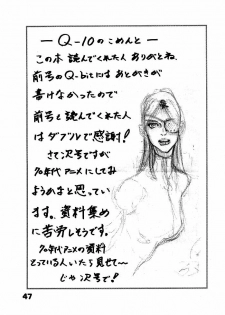 — Q-10のこめんと —
この本 読んでくれた人 ありがとね。
前号のQ-bitにはあとがきが
書けなかったので
前号と読んでくれた人
はダブルで感謝!
さて次号ですが
70年代アニメにしてみ
ようかなと思ってい
ます。資料集めに
苦労しそうです。
70年代アニメの資料
とっている人いたら見せて〜
じゃ次号で!
47